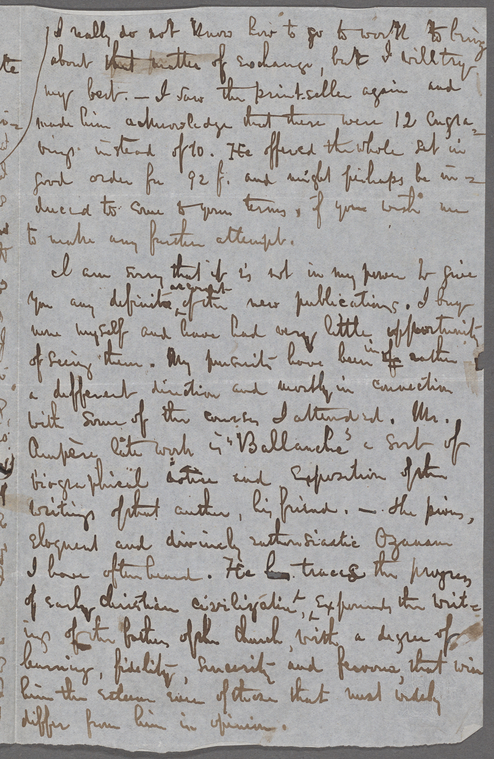 I really do not know how to go to work to bring
about that matter of exchange, but I will try
my best. — I saw the print-seller again and
made him acknowledge that there were 12 engra-
vings instead of 10. He offered the whole set in
good order for 92 f. and might perhaps be in-
duced to come to your terms, if you wish me
to make any further attempt.
I am sorry that it is not in my power to give
you any definite account of the new publications. I buy
none myself and have had very little opportunity
of seeing them. My pursuits have been in rather
a different direction and mostly in connection
with some of the courses I attended. Mr.
Ampère late work is "Ballanche" a sort of
biographical notice and exposition of the
writings of that author, his friend. — The pious,
eloquent and divinely enthusiastic Ozanam
I have often heard. He traces the progress
of early christian civilization, expounds the writ-
ings of the fathers of the church, with a degree of
learning, fidelity, sincerity and fervour, that win
him the esteem even of those that most widely
differ from him in opinion.